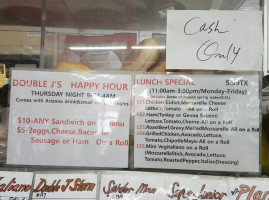 Cash
Only
DOUBLE J'S HAPPY HOUR
THURSDAY NIGHT 9PM-4AM
Comes with Arizona drink&small
$10-ANY Sandwich on menu
$5-2eggs,Cheese,Bacon or
Sausage or Ham On a Roll
LUNCH SPECIAL 5.99TX
(11:00am-3:00pm/Monday-Friday)
L#1.Chicken Cutlet,Mozzarella Cheese
Lettuce,Tomato -All on a Roll
L#2.Ham(Turkey or Genoa Salami)
Lettuce,Tomato,Cheese-All on a Roll
L#3.RoastBeef,Gravy,MeltedMozzarella-All on a Roll
L#4.Grilled Chicken,Avocado,Lettuce,
Tomato,ChipotleMayo-All on a Roll
L#5.Mini Vegitaliano on a Roll
(MozzarellaSticks,Avocado,Lettuce,
Tomato,RoastedPepper,ItalianDressing)
Italiano
Double J Slam
Spider